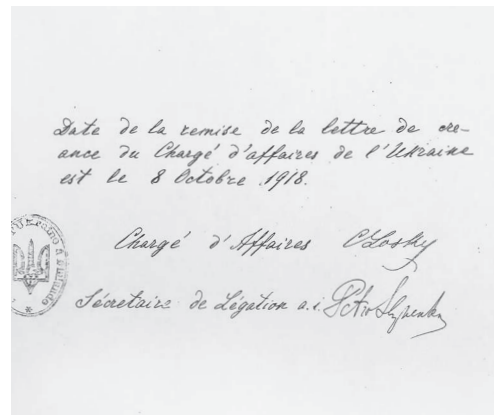 Date de la remise de la lettre de cre-
ance du Chargé d'affaires de l'Ukraine
est le 8 Octobre 1918.
Chargé d'Affaires CLosky
Sécretaire de Légation a.i. Petro